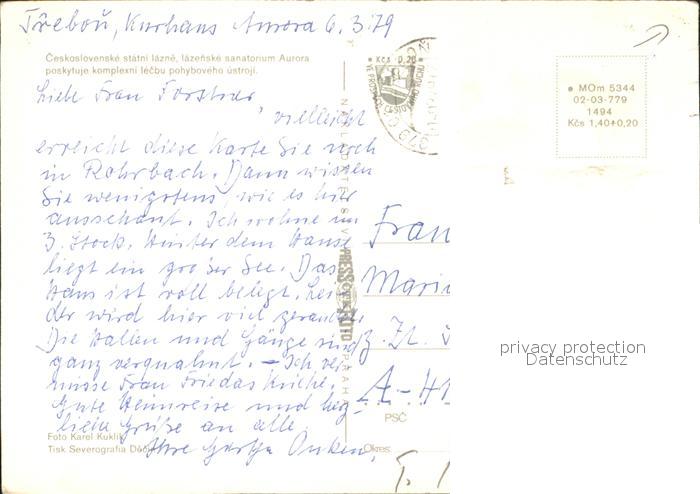 Třeboň, Kurhaus Aurora 6.3.79
Československé státní lázně, lázeňské sanatorium Aurora
poskytuje komplexní léčbu pohybového ústrojí.
Kčs 0,20
MOm 5344
02-03-779
1494
Kčs 1,40+0,20
Liebe Frau Forstner,
vielleicht
erreicht diese Karte Sie noch
in Rohrbach. Dann wissen
Sie wenigstens, wie es hier
ausschaut. Ich wohne im
3. Stock. Hinter dem Hause
liegt ein großer See. Das
Haus ist voll belegt. Lei-
der wird hier viel geraucht.
Die Hallen und Gänge sind
ganz verqualmt. – Ich ver-
misse Frau Friedas Küche.
Gute Heimreise und herz-
liche Grüße an alle
Ihre
PRESSFOTO
PRAHA
Frau
Mari
z. Zt.
A-41
PSČ
Okres:
Foto Karel Kuklík
Tisk Severografia Děčín
privacy protection
Datenschutz